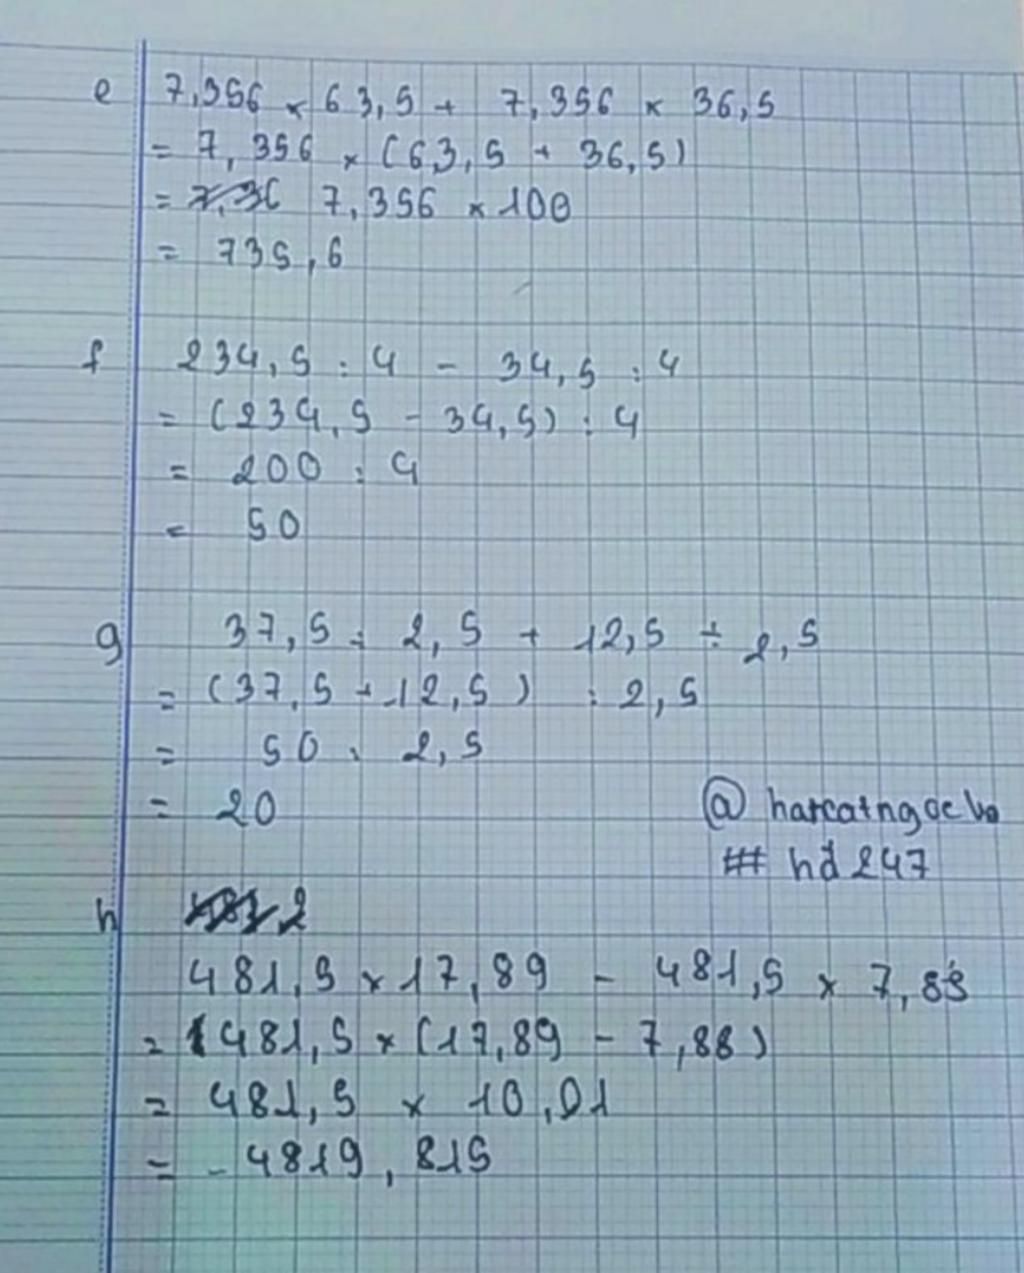 e 7,356 × 63,5 + 7,356 × 36,5
= 7,356 × (63,5 + 36,5)
= 7,356 × 100
= 735,6
f 234,5 : 4 - 34,5 : 4
= (234,5 - 34,5) : 4
= 200 : 4
= 50
g 37,5 : 2,5 + 12,5 ÷ 2,5
= (37,5 + 12,5) : 2,5
= 50 : 2,5
= 20
@ harcatngocbo
# hd 247
h
481,5 × 17,89 - 481,5 × 7,88
= 481,5 × (17,89 - 7,88)
= 481,5 × 10,01
= 4819,815